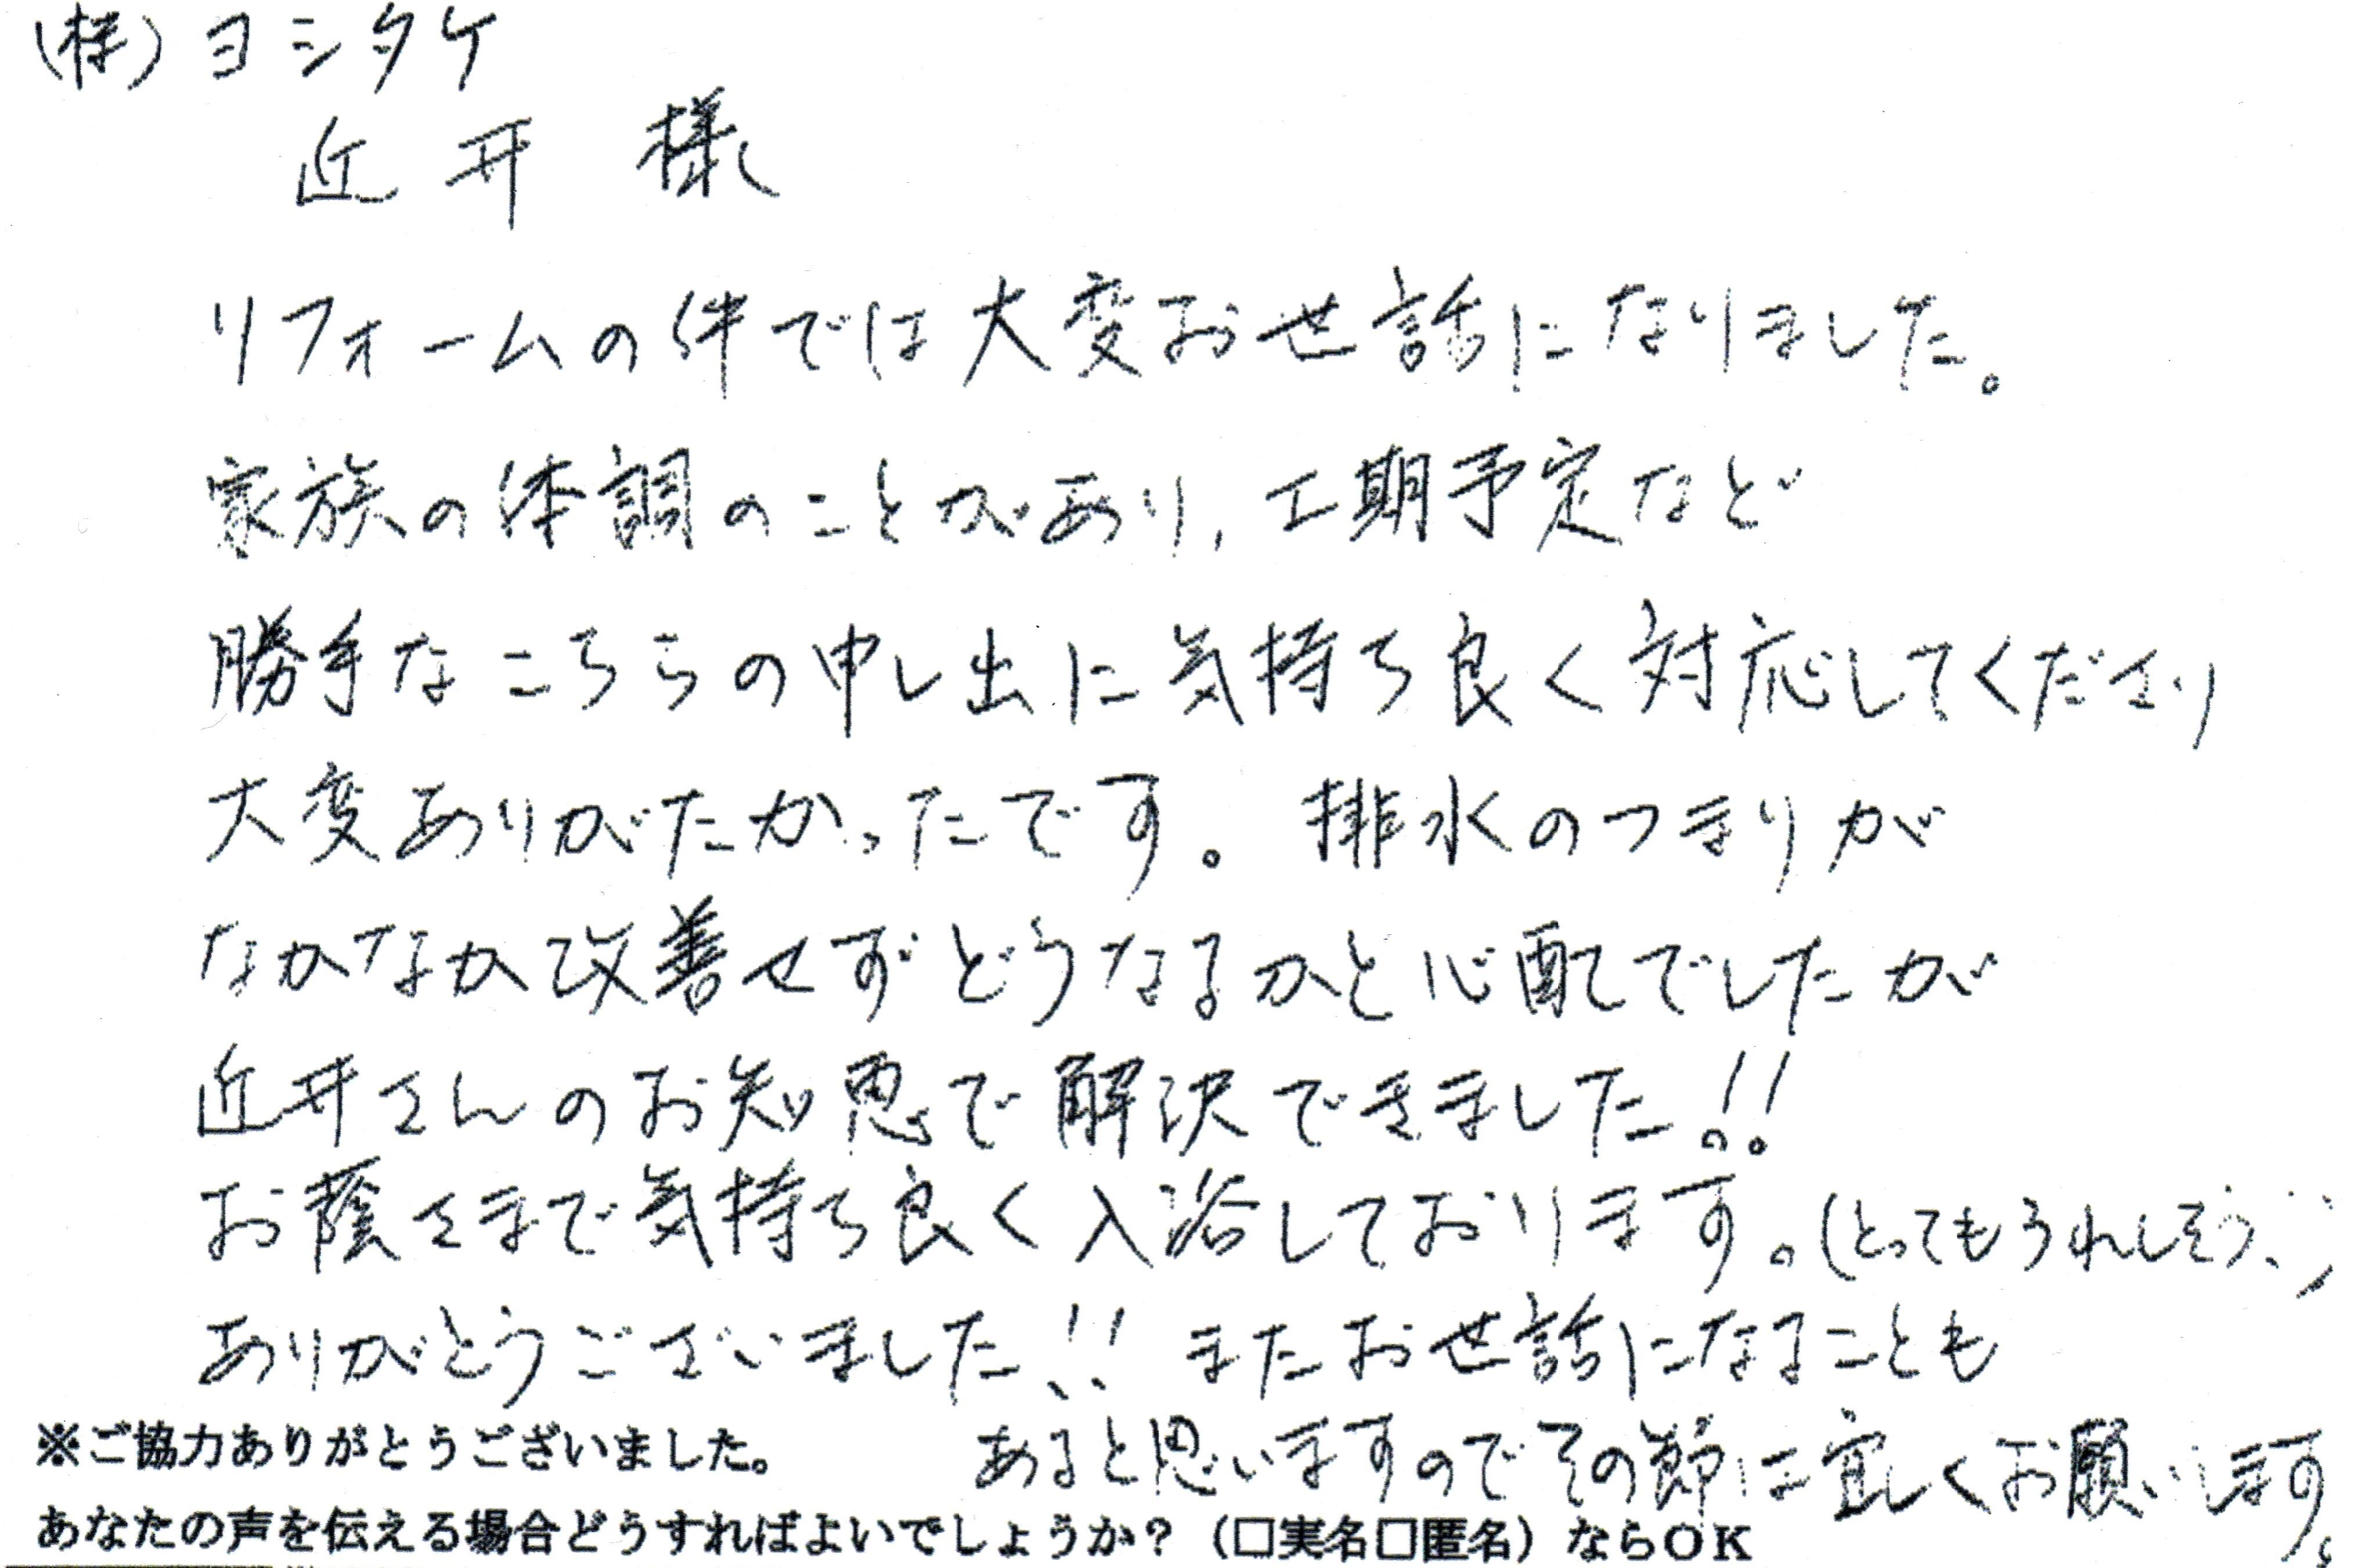 (株)ヨシタケ
近井 様
リフォームの件では大変お世話になりました。
家族の体調のことがあり、工期予定など
勝手なこちらの申し出に気持ち良く対応してくださり
大変ありがたかったです。排水のつまりが
なかなか改善せずどうなるかと心配でしたが
近井さんのお知恵で解決できました!!
お蔭さまで気持ち良く入浴しております。(とってもうれしそう、)
ありがとうございました!! またお世話になることも
あると思いますのでその節に宜しくお願いします。
※ご協力ありがとうございました。
あなたの声を伝える場合どうすればよいでしょうか?(□実名□匿名)ならOK